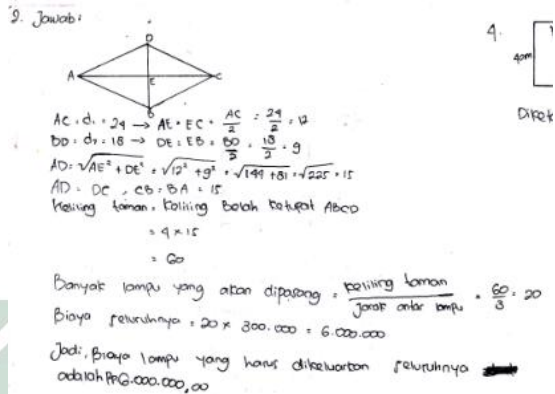 2. Jawab:
D
A
E
C
B
AC = d₁ = 24 → AE = EC = AC/2 = 24/2 = 12
BD = d₂ = 18 → DE = EB = BD/2 = 18/2 = 9
AD = √AE² + DE² = √12² + 9² = √144 + 81 = √225 = 15
AD = DC = CB = BA = 15
Keliling taman = Keliling Belah ketupat ABCD
= 4 x 15
= 60
Banyak lampu yang akan dipasang = keliling taman/Jarak antar lampu = 60/3 = 20
Biaya seluruhnya = 20 x 300.000 = 6.000.000
Jadi, Biaya lampu yang harus dikeluarkan seluruhnya
adalah Rp6.000.000,00
4.
40m
Diket